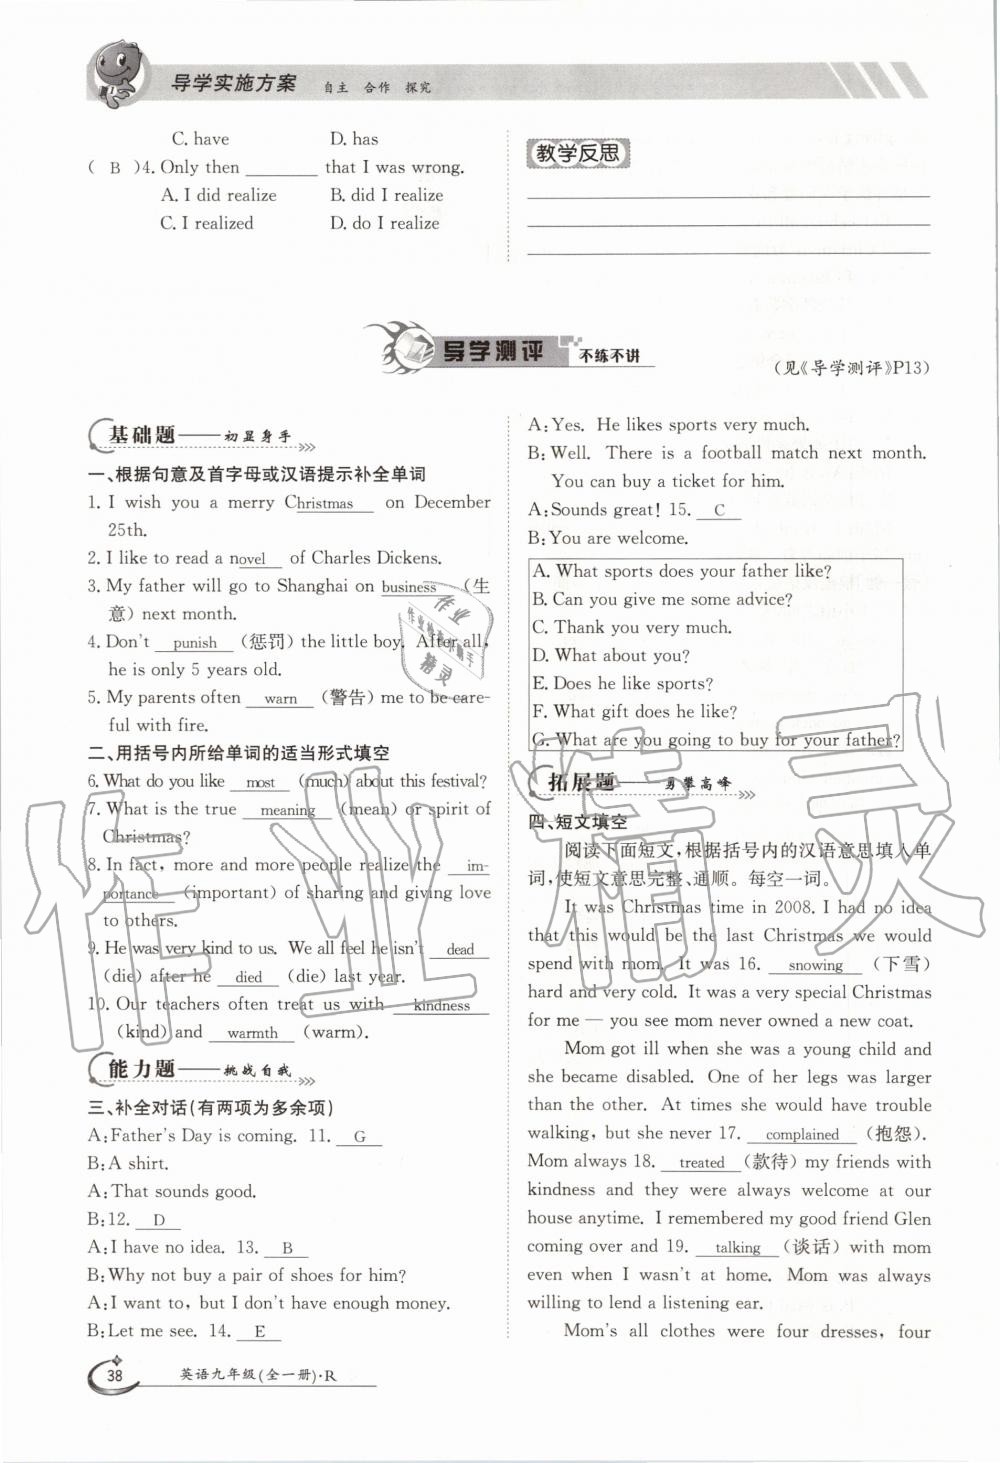 导学实施方案 自主 合作 探究
C. have D. has
( B )4. Only then ________ that I was wrong.
A. I did realize B. did I realize
C. I realized D. do I realize
教学反思
导学测评 不练不讲
(见《导学测评》P13)
基础题——初显身手
一、根据句意及首字母或汉语提示补全单词
1. I wish you a merry Christmas on December
25th.
2. I like to read a novel of Charles Dickens.
3. My father will go to Shanghai on business (生
意) next month.
4. Don't punish (惩罚) the little boy. After all,
he is only 5 years old.
5. My parents often warn (警告) me to be care-
ful with fire.
二、用括号内所给单词的适当形式填空
6. What do you like most (much) about this festival?
7. What is the true meaning (mean) or spirit of
Christmas?
8. In fact, more and more people realize the im-
portance (important) of sharing and giving love
to others.
9. He was very kind to us. We all feel he isn't dead
(die) after he died (die) last year.
10. Our teachers often treat us with kindness
(kind) and warmth (warm).
能力题——挑战自我
三、补全对话(有两项为多余项)
A: Father's Day is coming. 11. G
B: A shirt.
A: That sounds good.
B: 12. D
A: I have no idea. 13. B
B: Why not buy a pair of shoes for him?
A: I want to, but I don't have enough money.
B: Let me see. 14. E
38 英语九年级(全一册)·R
A: Yes. He likes sports very much.
B: Well. There is a football match next month.
You can buy a ticket for him.
A: Sounds great! 15. C
B: You are welcome.
A. What sports does your father like?
B. Can you give me some advice?
C. Thank you very much.
D. What about you?
E. Does he like sports?
F. What gift does he like?
G. What are you going to buy for your father?
拓展题——勇攀高峰
四、短文填空
阅读下面短文,根据括号内的汉语意思填入单
词,使短文意思完整、通顺。每空一词。
It was Christmas time in 2008. I had no idea
that this would be the last Christmas we would
spend with mom. It was 16. snowing (下雪)
hard and very cold. It was a very special Christmas
for me — you see mom never owned a new coat.
Mom got ill when she was a young child and
she became disabled. One of her legs was larger
than the other. At times she would have trouble
walking, but she never 17. complained (抱怨).
Mom always 18. treated (款待) my friends with
kindness and they were always welcome at our
house anytime. I remembered my good friend Glen
coming over and 19. talking (谈话) with mom
even when I wasn't at home. Mom was always
willing to lend a listening ear.
Mom's all clothes were four dresses, four
作业精灵